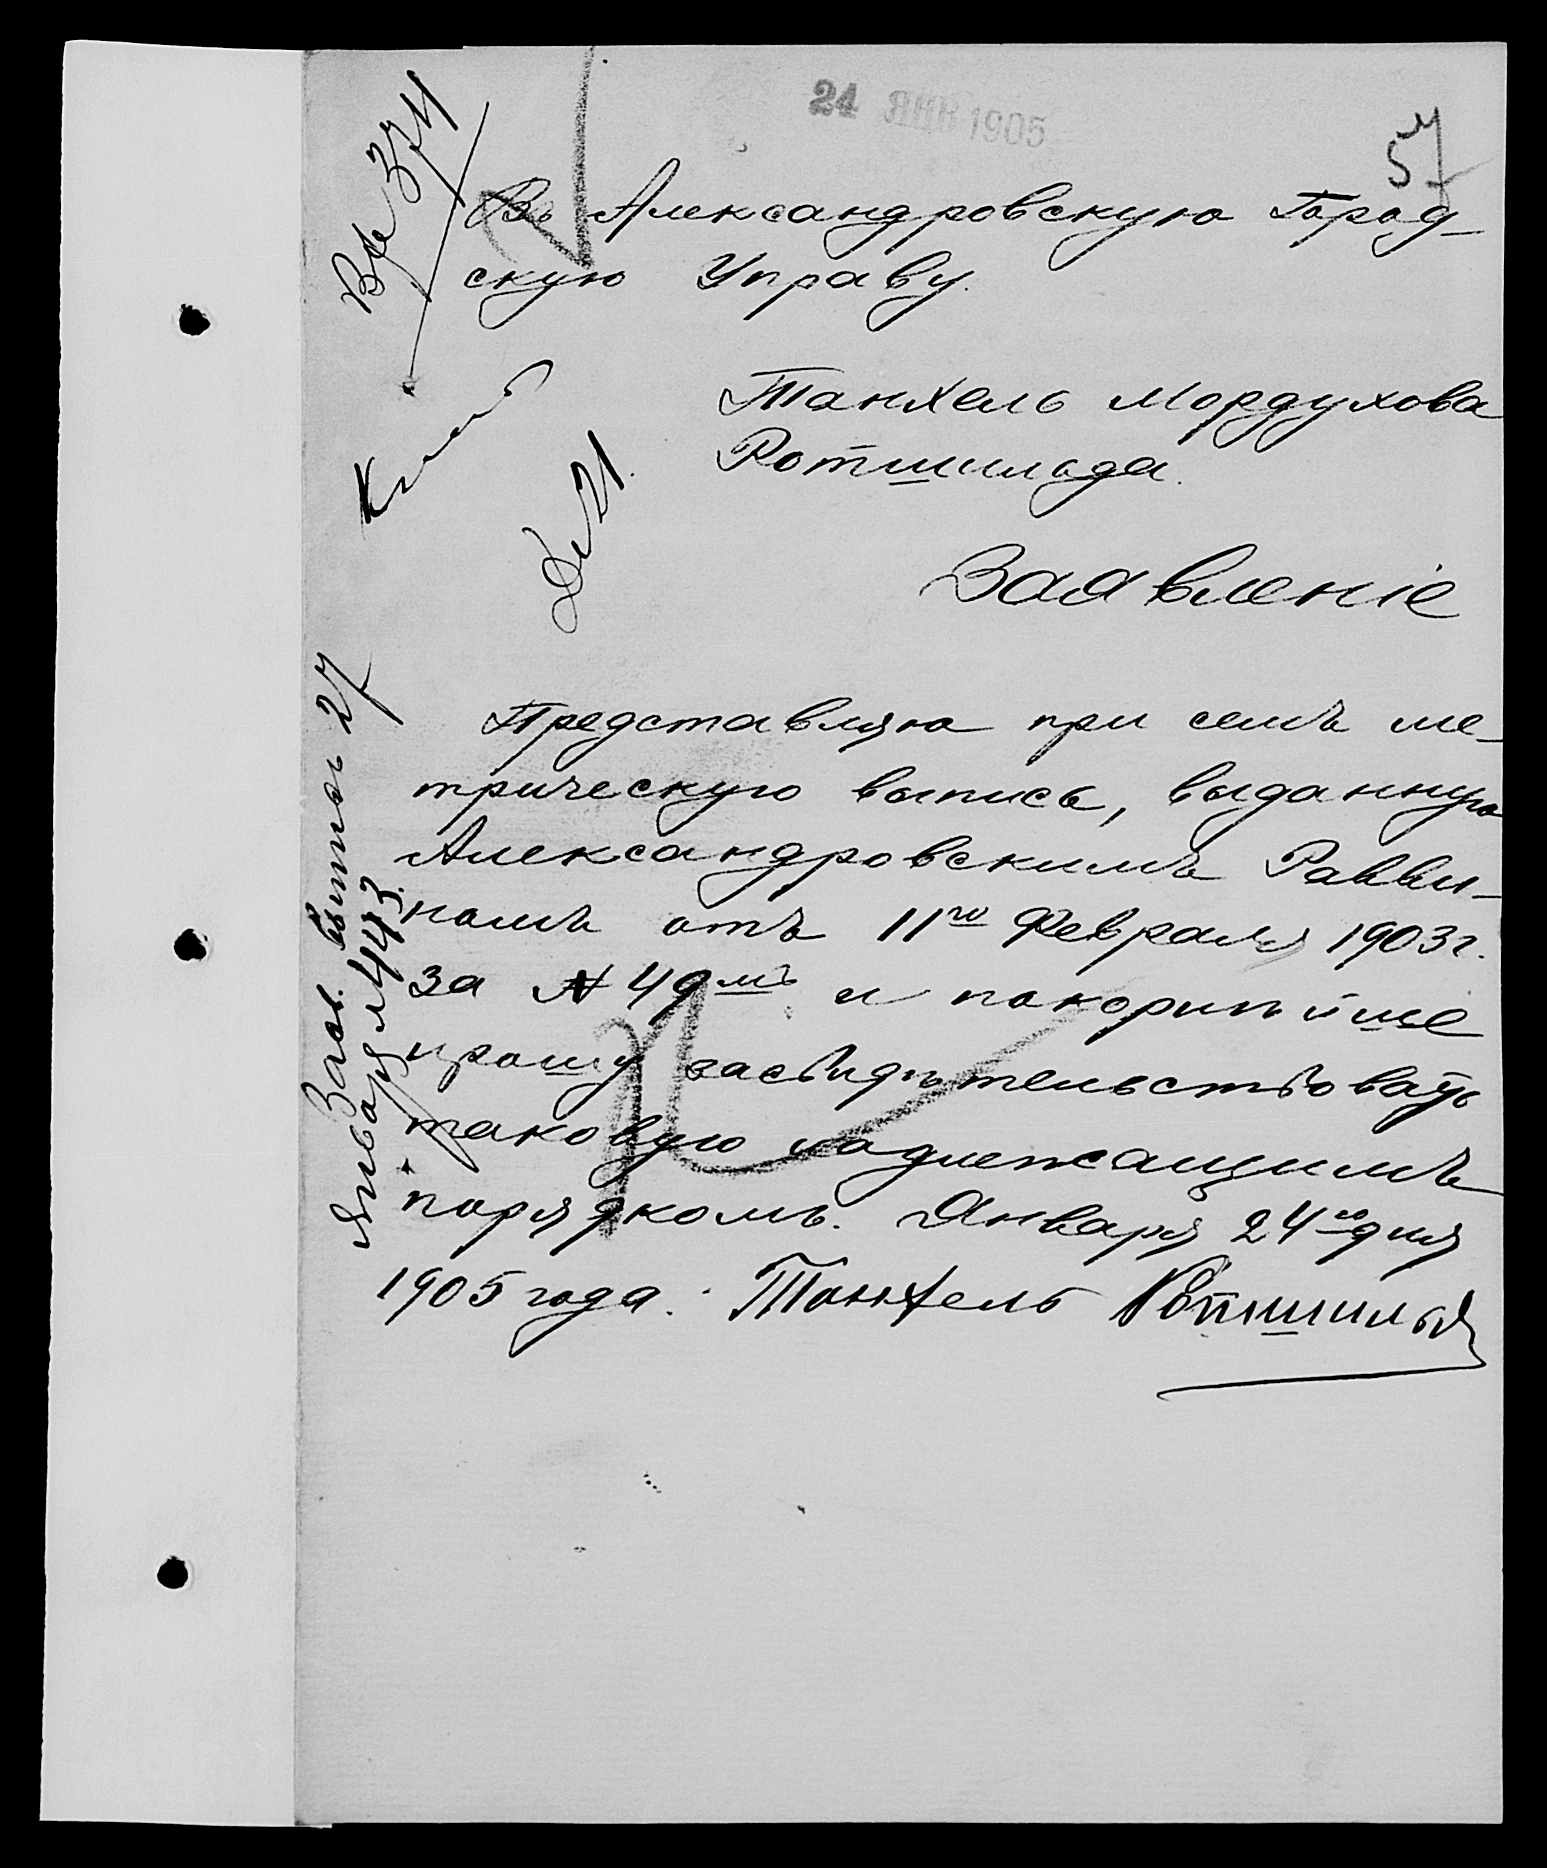 24 ЯНВ 1905
57
Вх № 374
Въ Александровскую Город-
скую Управу.
Танхель Мордухова
Ротшильда.
Д № 21.
Заявленіе
Представляю при семъ ме-
трическую выпись, выданную
Александровскимъ Равви-
номъ отъ 11го Февраля 1903 г.
за № 49мъ и покорнѣйше
прошу засвидѣтельствовать
таковую надлежащимъ
порядкомъ. Января 24го дня
1905 года. Танхель Ротшильд
27
Января № 443.